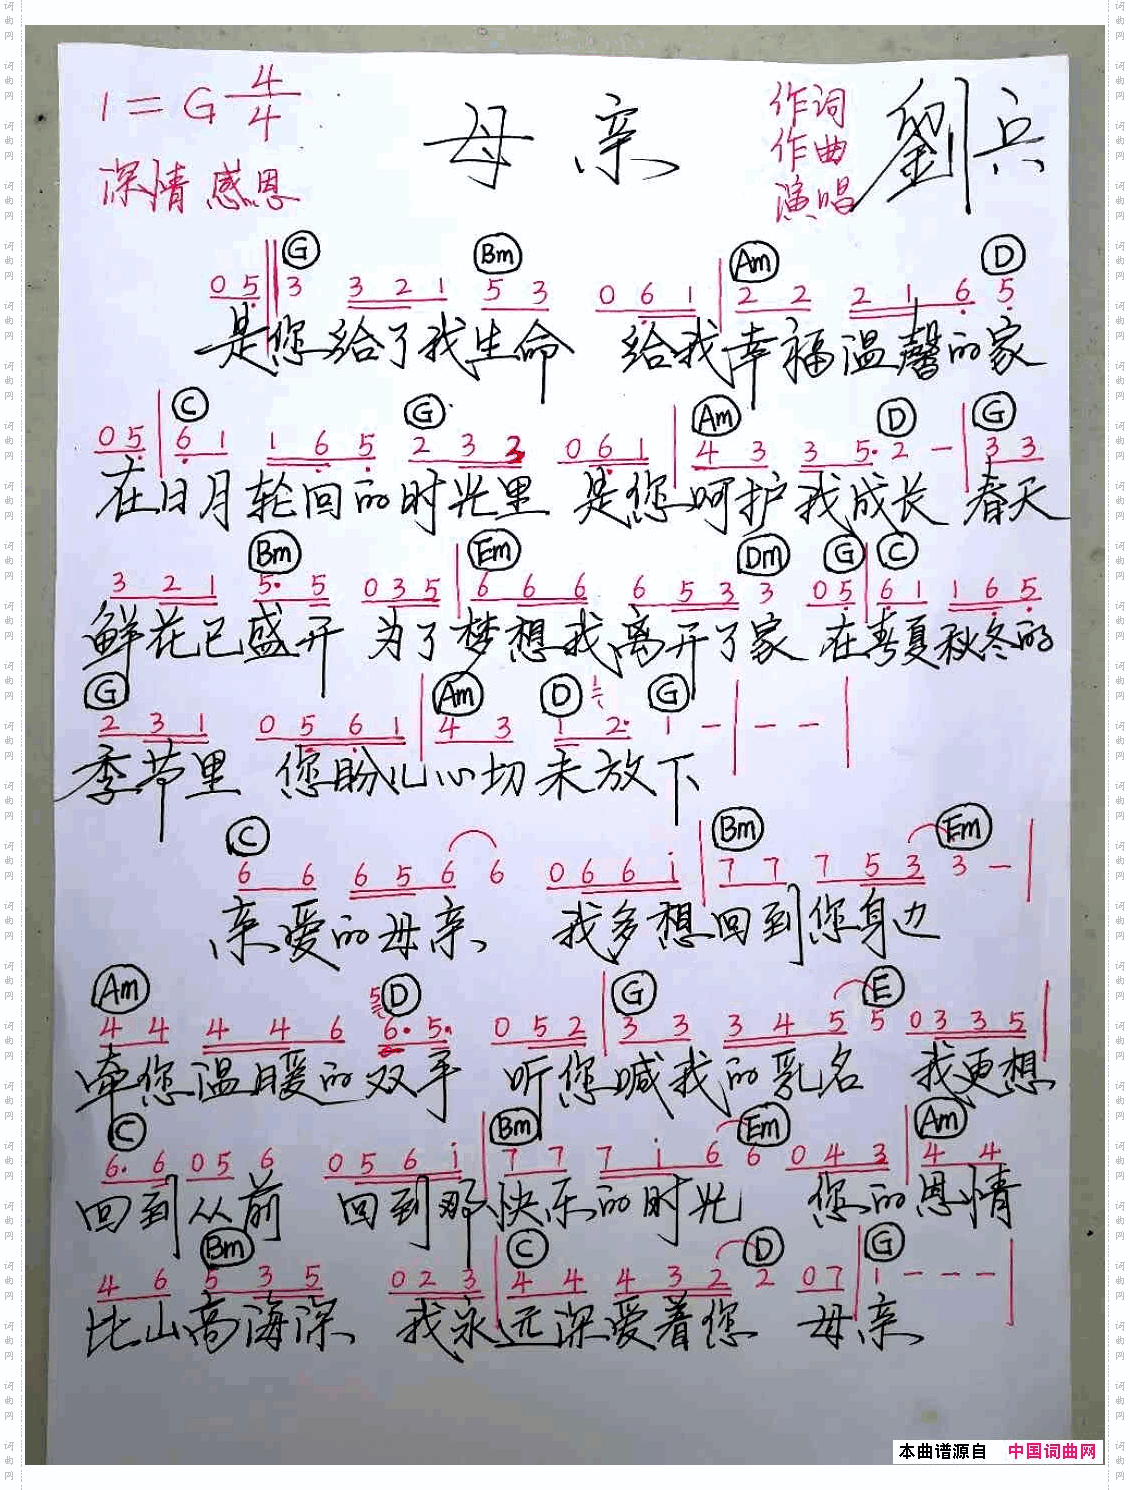 1=G 4/4 母亲 作词 劉兵
作曲
深情 感恩 演唱
G Bm Am D
0 5 3 3 2 1 5 3 0 6 1 2 2 2 1 6 5
是您给了我生命 给我幸福温馨的家
C G Am D G
0 5 6 1 1 6 5 2 3 3 0 6 1 4 3 3 5· 2 - 3 3
在日月轮回的时光里 是您呵护我成长 春天
Bm Em Dm G C
3 2 1 5· 5 0 3 5 6 6 6 6 5 3 3 0 5 6 1 1 6 5
鲜花已盛开 为了梦想我离开了家 在春夏秋冬的
G Am D G
2 3 1 0 5 6 1 4 3 1 2· 1 - - - -
季节里 您盼儿心切未放下
C Bm Em
6 6 6 5 6 6 0 6 6 i 7 7 7 5 3 3 -
亲爱的母亲 我多想回到您身边
Am 5 D G E
4 4 4 4 6 6· 5· 0 5 2 3 3 3 4 5 5 0 3 3 5
牵您温暖的双手 听您喊我的乳名 我更想
C Bm Em Am
6· 6 0 5 6 0 5 6 i 7 7 7 i 6 6 0 4 3 4 4
回到从前 回到那快乐的时光 您的恩情
Bm C D G
4 6 5 3 5 0 2 3 4 4 4 3 2 2 0 7 1 - - -
比山高海深 我永远深爱着您 母亲
本曲谱源自 中国词曲网